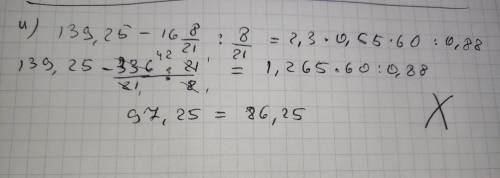 и) 139,25 - 16 8/21 : 8/21 = 2,3 · 0,55 · 60 : 0,88
139,25 - 336/21 · 21/8 42 = 1,265 · 60 : 0,88
97,25 = 86,25 X